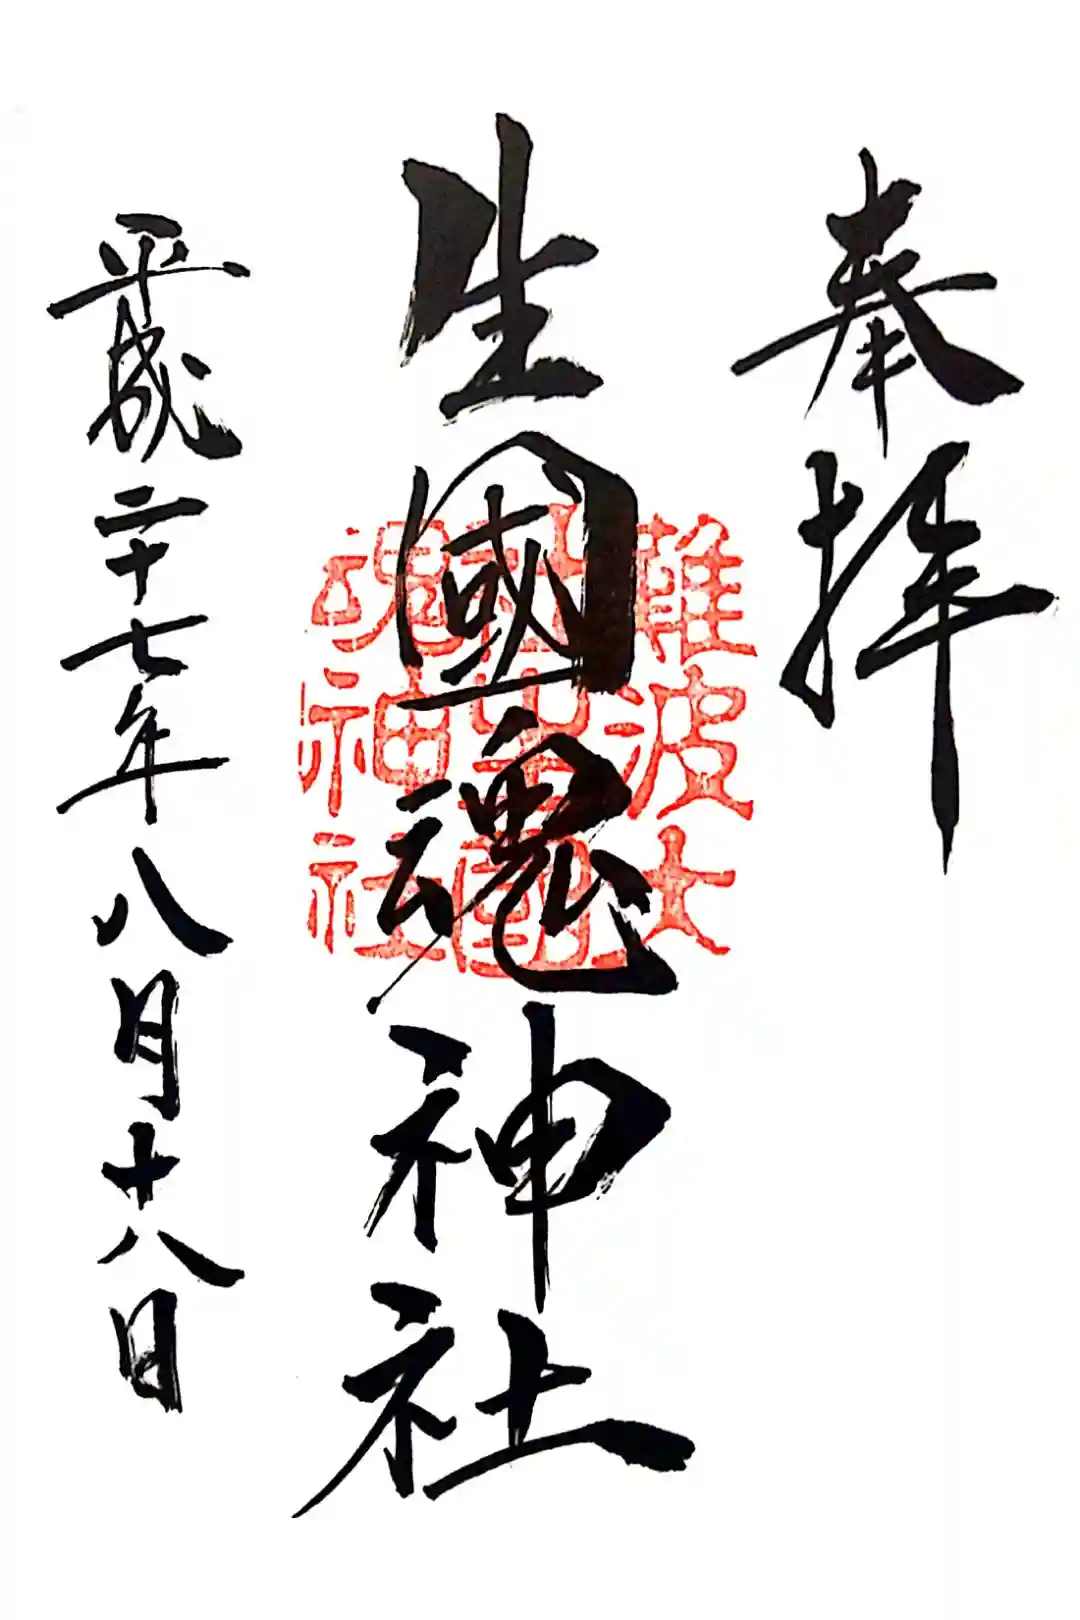 奉拝
生國魂神社
難波大
社生國
魂神社
平成二十七年八月十八日